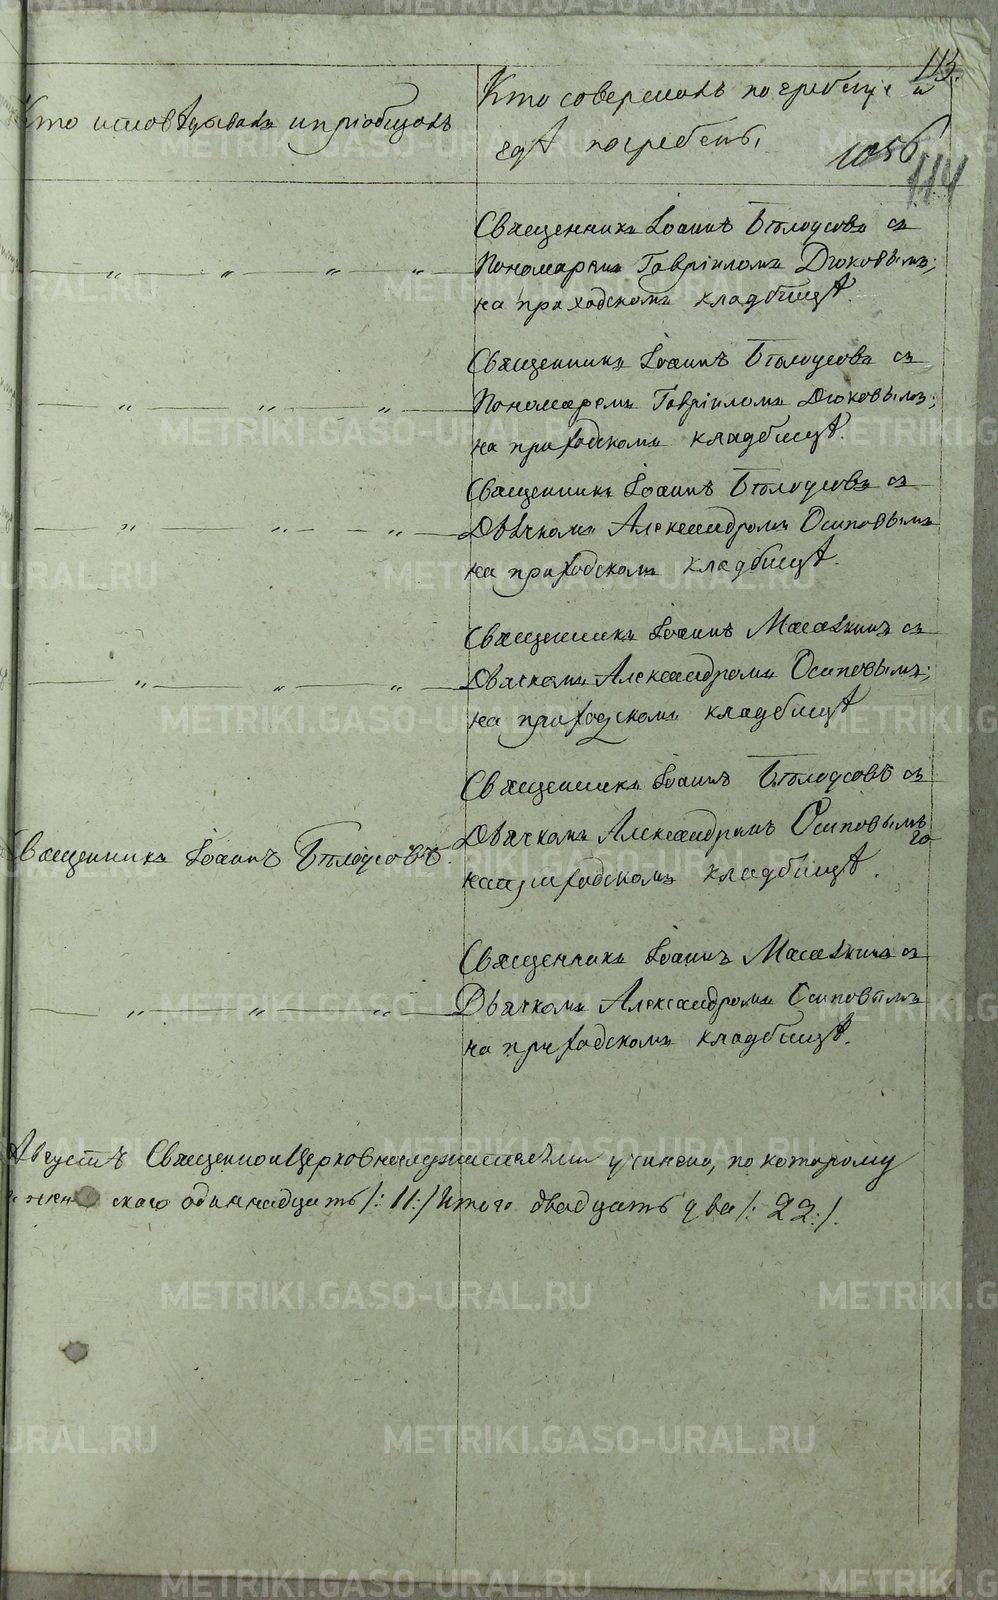 113.
Кто исповѣдывалъ и пріобщалъ
Кто совершалъ погребеніе и
гдѣ погребены.
1056
114
Священникъ Іоаннъ Бѣлоусовъ съ
Пономаремъ Гавріиломъ Дюковымъ;
на приходскомъ кладбищѣ.
Священникъ Іоаннъ Бѣлоусовъ съ
Пономаремъ Гавріиломъ Дюковымъ;
на приходскомъ кладбищѣ.
Священникъ Іоаннъ Бѣлоусовъ съ
Дьячкомъ Александромъ Осиповымъ
на приходскомъ кладбищѣ.
Священникъ Іоаннъ съ
Дьячкомъ Александромъ Осиповымъ;
на приходскомъ кладбищѣ
Священникъ Іоаннъ Бѣлоусовъ.
Священникъ Іоаннъ Бѣлоусовъ съ
Дьячкомъ Александромъ Осиповымъ
на приходскомъ кладбищѣ.
Священникъ Іоаннъ съ
Дьячкомъ Александромъ Осиповымъ
на приходскомъ кладбищѣ.
Августѣ Священно и Церковнослужителями учинено, по которому
скаго одиннадцать /: 11 :/ Итого двадцать два /: 22 :/.
METRIKI.GASO-URAL.RU